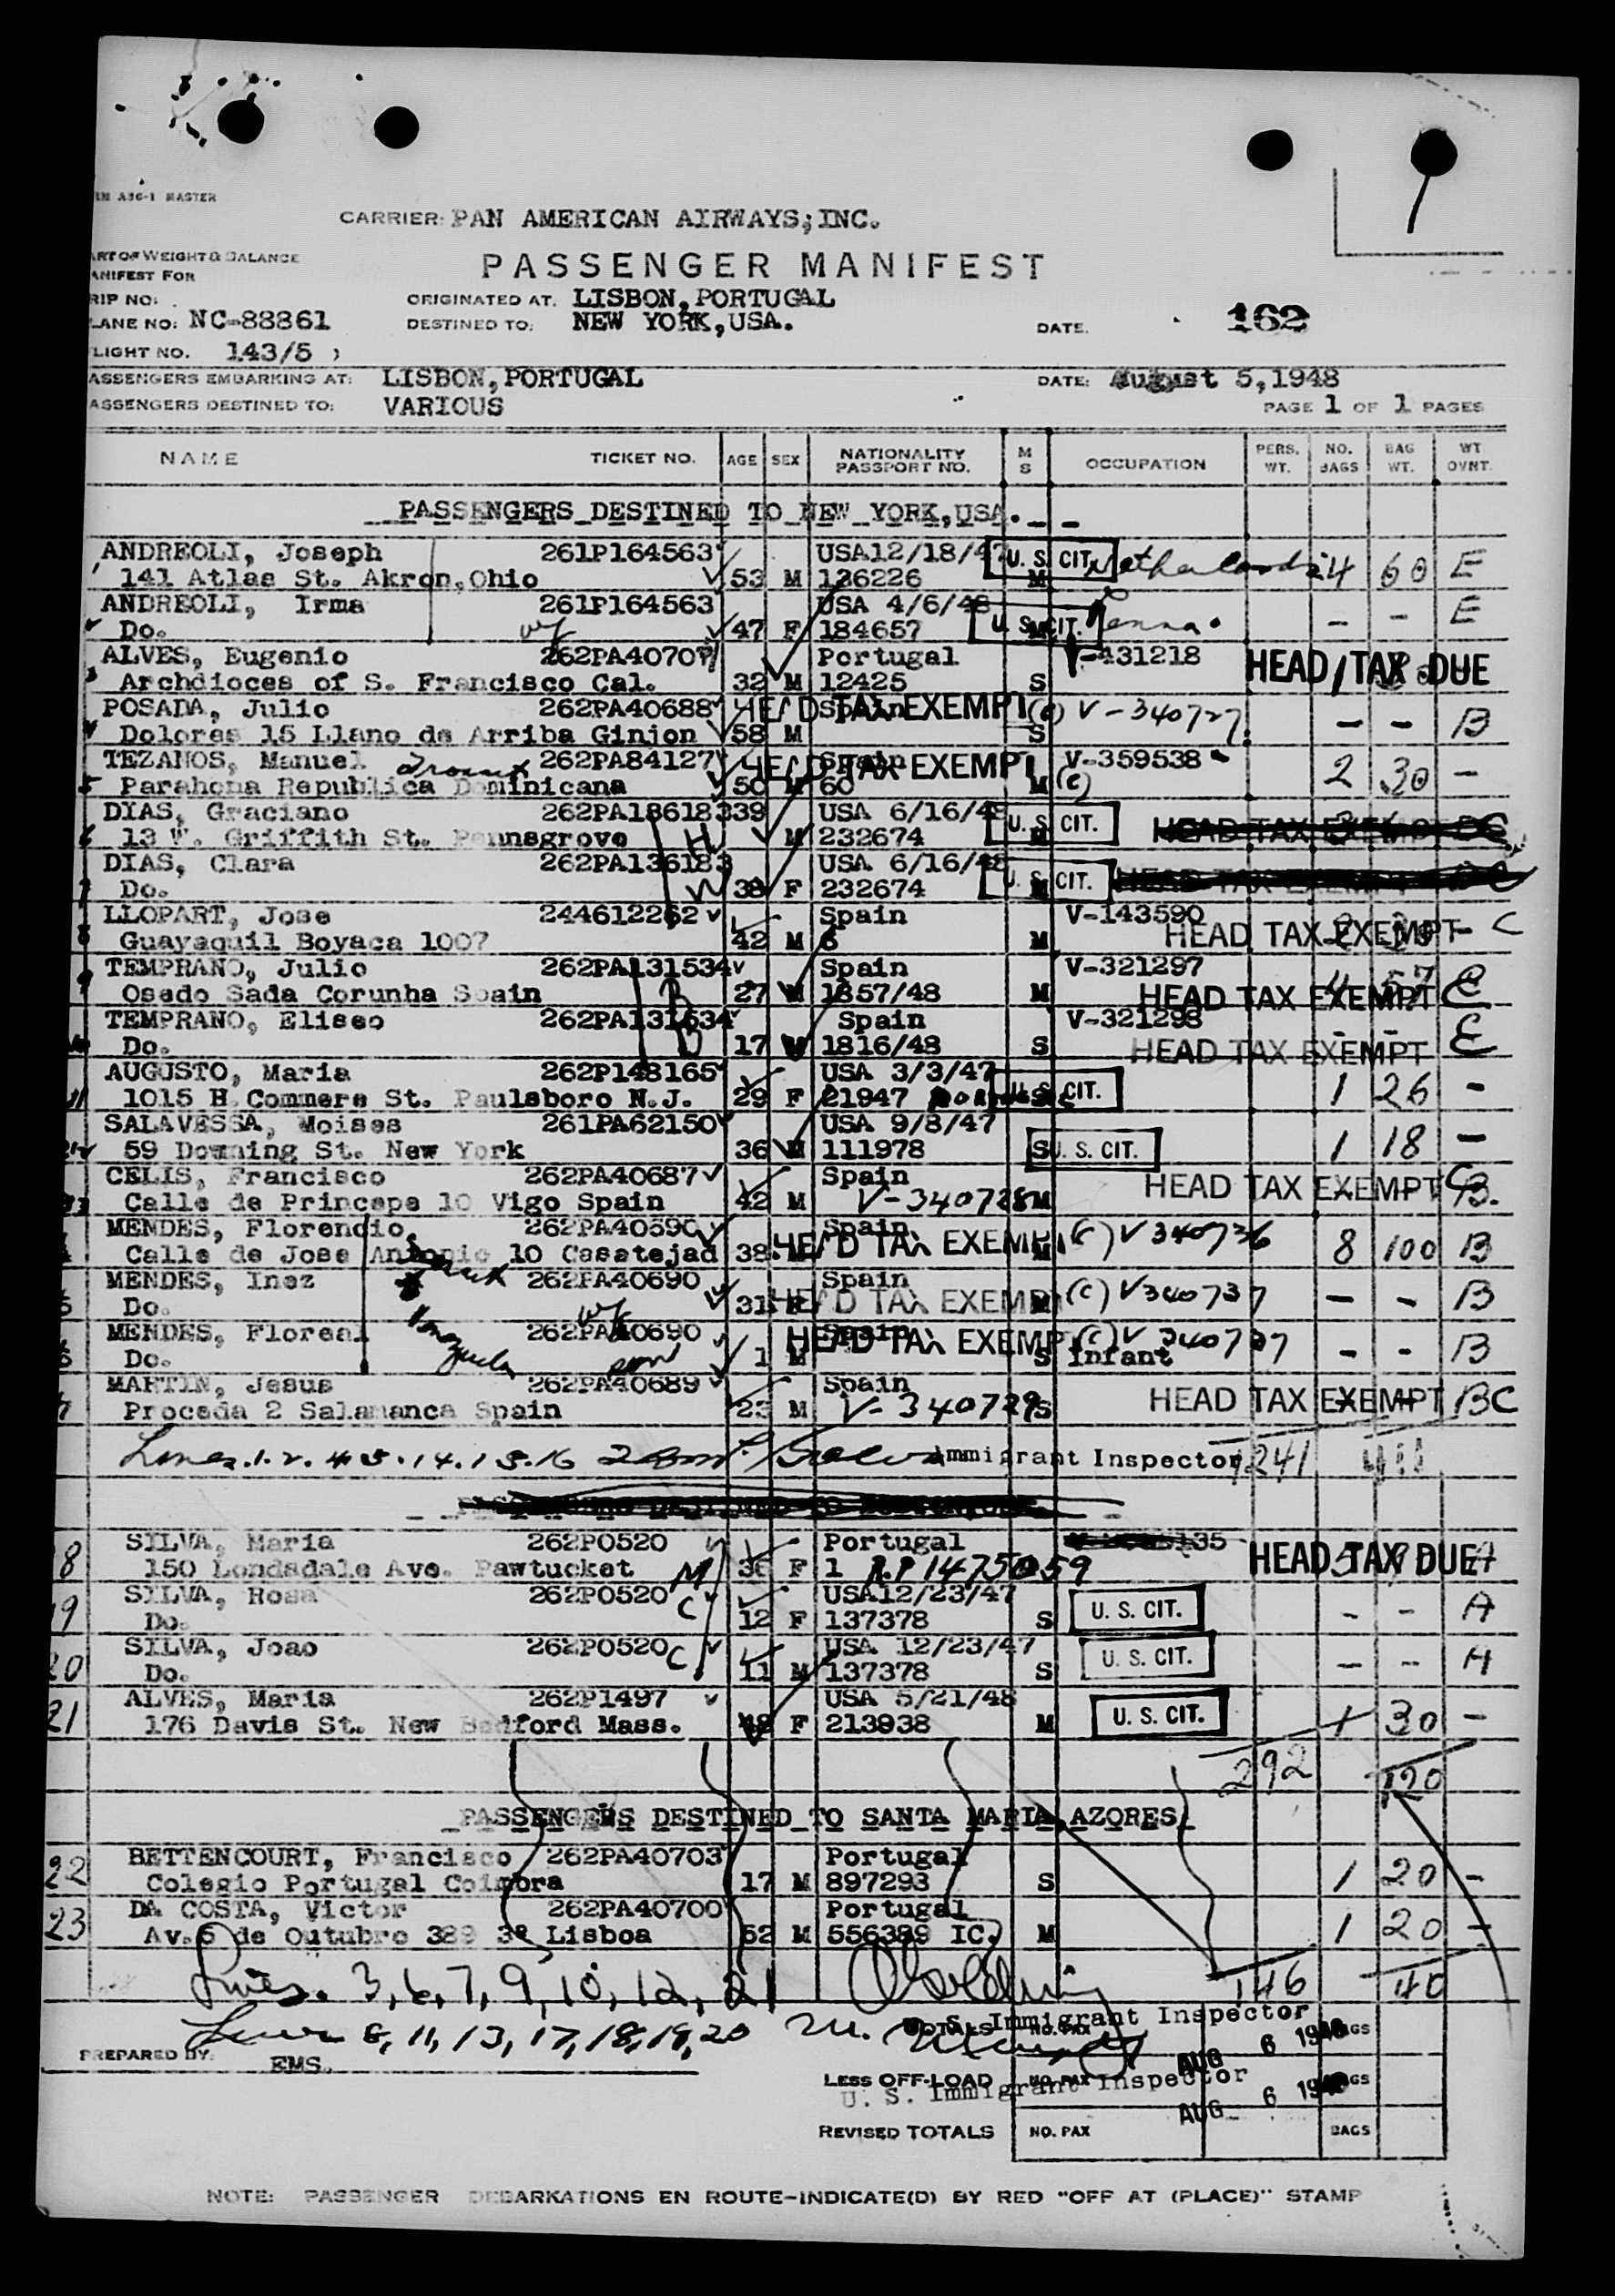 RM A36-1 MASTER
CARRIER: PAN AMERICAN AIRWAYS, INC.
ART OF WEIGHT & BALANCE
ANIFEST FOR
PASSENGER MANIFEST
RIP NO:
ORIGINATED AT. LISBON, PORTUGAL
LANE NO: NC-88861
DESTINED TO: NEW YORK, USA.
DATE. 162
LIGHT NO. 143/5
ASSENGERS EMBARKING AT: LISBON, PORTUGAL DATE: August 5, 1948
ASSENGERS DESTINED TO: VARIOUS PAGE 1 OF 1 PAGES
NAME TICKET NO. AGE SEX NATIONALITY PASSPORT NO. M S OCCUPATION PERS. WT. NO. BAGS BAG WT. WT OVNT.
PASSENGERS DESTINED TO NEW YORK, USA.
ANDREOLI, Joseph 261P164563 USA12/18/47 U. S. CIT. Netherlands
1 141 Atlas St. Akron, Ohio 53 M 126226 M 4 60 E
ANDREOLI, Irma 261P164563 USA 4/6/48 U. S. CIT. E
Do. wf 47 F 184657 M - -
ALVES, Eugenio 262PA40707 Portugal V-431218 HEAD TAX DUE
3 Archdioces of S. Francisco Cal. 32 M 12425 S 1
POSADA, Julio 262PA40688 Spain HEAD TAX EXEMPT (C) V-340727
Dolores 15 Llano de Arriba Ginjon 58 M S - - B
TEZANOS, Manuel 262PA84127 Spain HEAD TAX EXEMPT V-359538
5 Parahona Republica Dominicana 50 M 60 M (C) 2 30 -
DIAS, Graciano 262PA136183 39 USA 6/16/48 U. S. CIT.
6 13 W. Griffith St. Pennsgrove H M 232674 M HEAD TAX EXEMPT
DIAS, Clara 262PA136183 USA 6/16/48 U. S. CIT. HEAD TAX EXEMPT
7 Do. W 38 F 232674 M
LLOPART, Jose 244612262 Spain V-143590
8 Guayaquil Boyaca 1007 42 M 6 M HEAD TAX EXEMPT - C
TEMPRANO, Julio 262PA131534 Spain V-321297
9 Osedo Sada Corunha Spain B 27 M 1857/48 M 4 57 HEAD TAX EXEMPT
TEMPRANO, Eliseo 262PA131534 Spain V-321298
10 Do. B 17 M 1816/48 S HEAD TAX EXEMPT
AUGUSTO, Maria 262P148165 USA 3/3/47 U. S. CIT.
11 1015 H Commere St. Paulsboro N.J. 29 F 21947 1 26 -
SALAVESSA, Moises 261PA62150 USA 9/8/47
12 59 Downing St. New York 36 M 111978 S U. S. CIT. 1 18 -
CELIS, Francisco 262PA40687 Spain HEAD TAX EXEMPT CB.
13 Calle de Princepe 10 Vigo Spain 42 M V-340728 M
MENDES, Florencio 262PA40690 Spain HEAD TAX EXEMPT (C) V340736
Calle de Jose Antonio 10 Casatejad 38 M 8 100 B
MENDES, Inez 262PA40690 Spain HEAD TAX EXEMPT (C) V340737
5 Do. wf 31 F M - - B
MENDES, Floreal 262PA40690 Spain HEAD TAX EXEMPT (C) V 340737
6 Do. Venezuela son 1 M S Infant - - B
MARTIN, Jesus 262PA40689 Spain HEAD TAX EXEMPT BC
7 Proceda 2 Salamanca Spain 23 M V-340729 S
Lines. 1. 2. 4. 5. 14. 15. 16 Immigrant Inspector 1241 411
SILVA, Maria 262P0520 Portugal 135 HEAD TAX DUE
18 150 Londsdale Ave. Pawtucket M 36 F 1 R.P 1475059 A
SILVA, Rosa 262P0520 USA12/23/47 U. S. CIT.
19 Do. C 12 F 137378 S - - A
SILVA, Joao 262P0520 USA 12/23/47 U. S. CIT.
20 Do. C 11 M 137378 S - - A
ALVES, Maria 262P1497 USA 5/21/48 U. S. CIT.
21 176 Davis St. New Bedford Mass. 48 F 213938 M 1 30 -
292 120
PASSENGERS DESTINED TO SANTA MARIA, AZORES
BETTENCOURT, Francisco 262PA40703 Portugal
22 Colegio Portugal Coimbra 17 M 897293 S 1 20 -
DA COSTA, Victor 262PA40700 Portugal
23 Av. 5 de Outubro 389 3º Lisboa 52 M 556389 IC. M 1 20 -
Lines. 3, 6, 7, 9, 10, 12, 21 146 40
U. S. Immigrant Inspector
Lines 8, 11, 13, 17, 18, 19, 20 TOTALS NO. PAX BAGS
AUG 6 1948
PREPARED BY: EMS.
LESS OFF-LOAD NO. PAX BAGS
U. S. Immigrant Inspector
AUG 6 1948
REVISED TOTALS NO. PAX BAGS
NOTE: PASSENGER DEBARKATIONS EN ROUTE-INDICATE(D) BY RED "OFF AT (PLACE)" STAMP